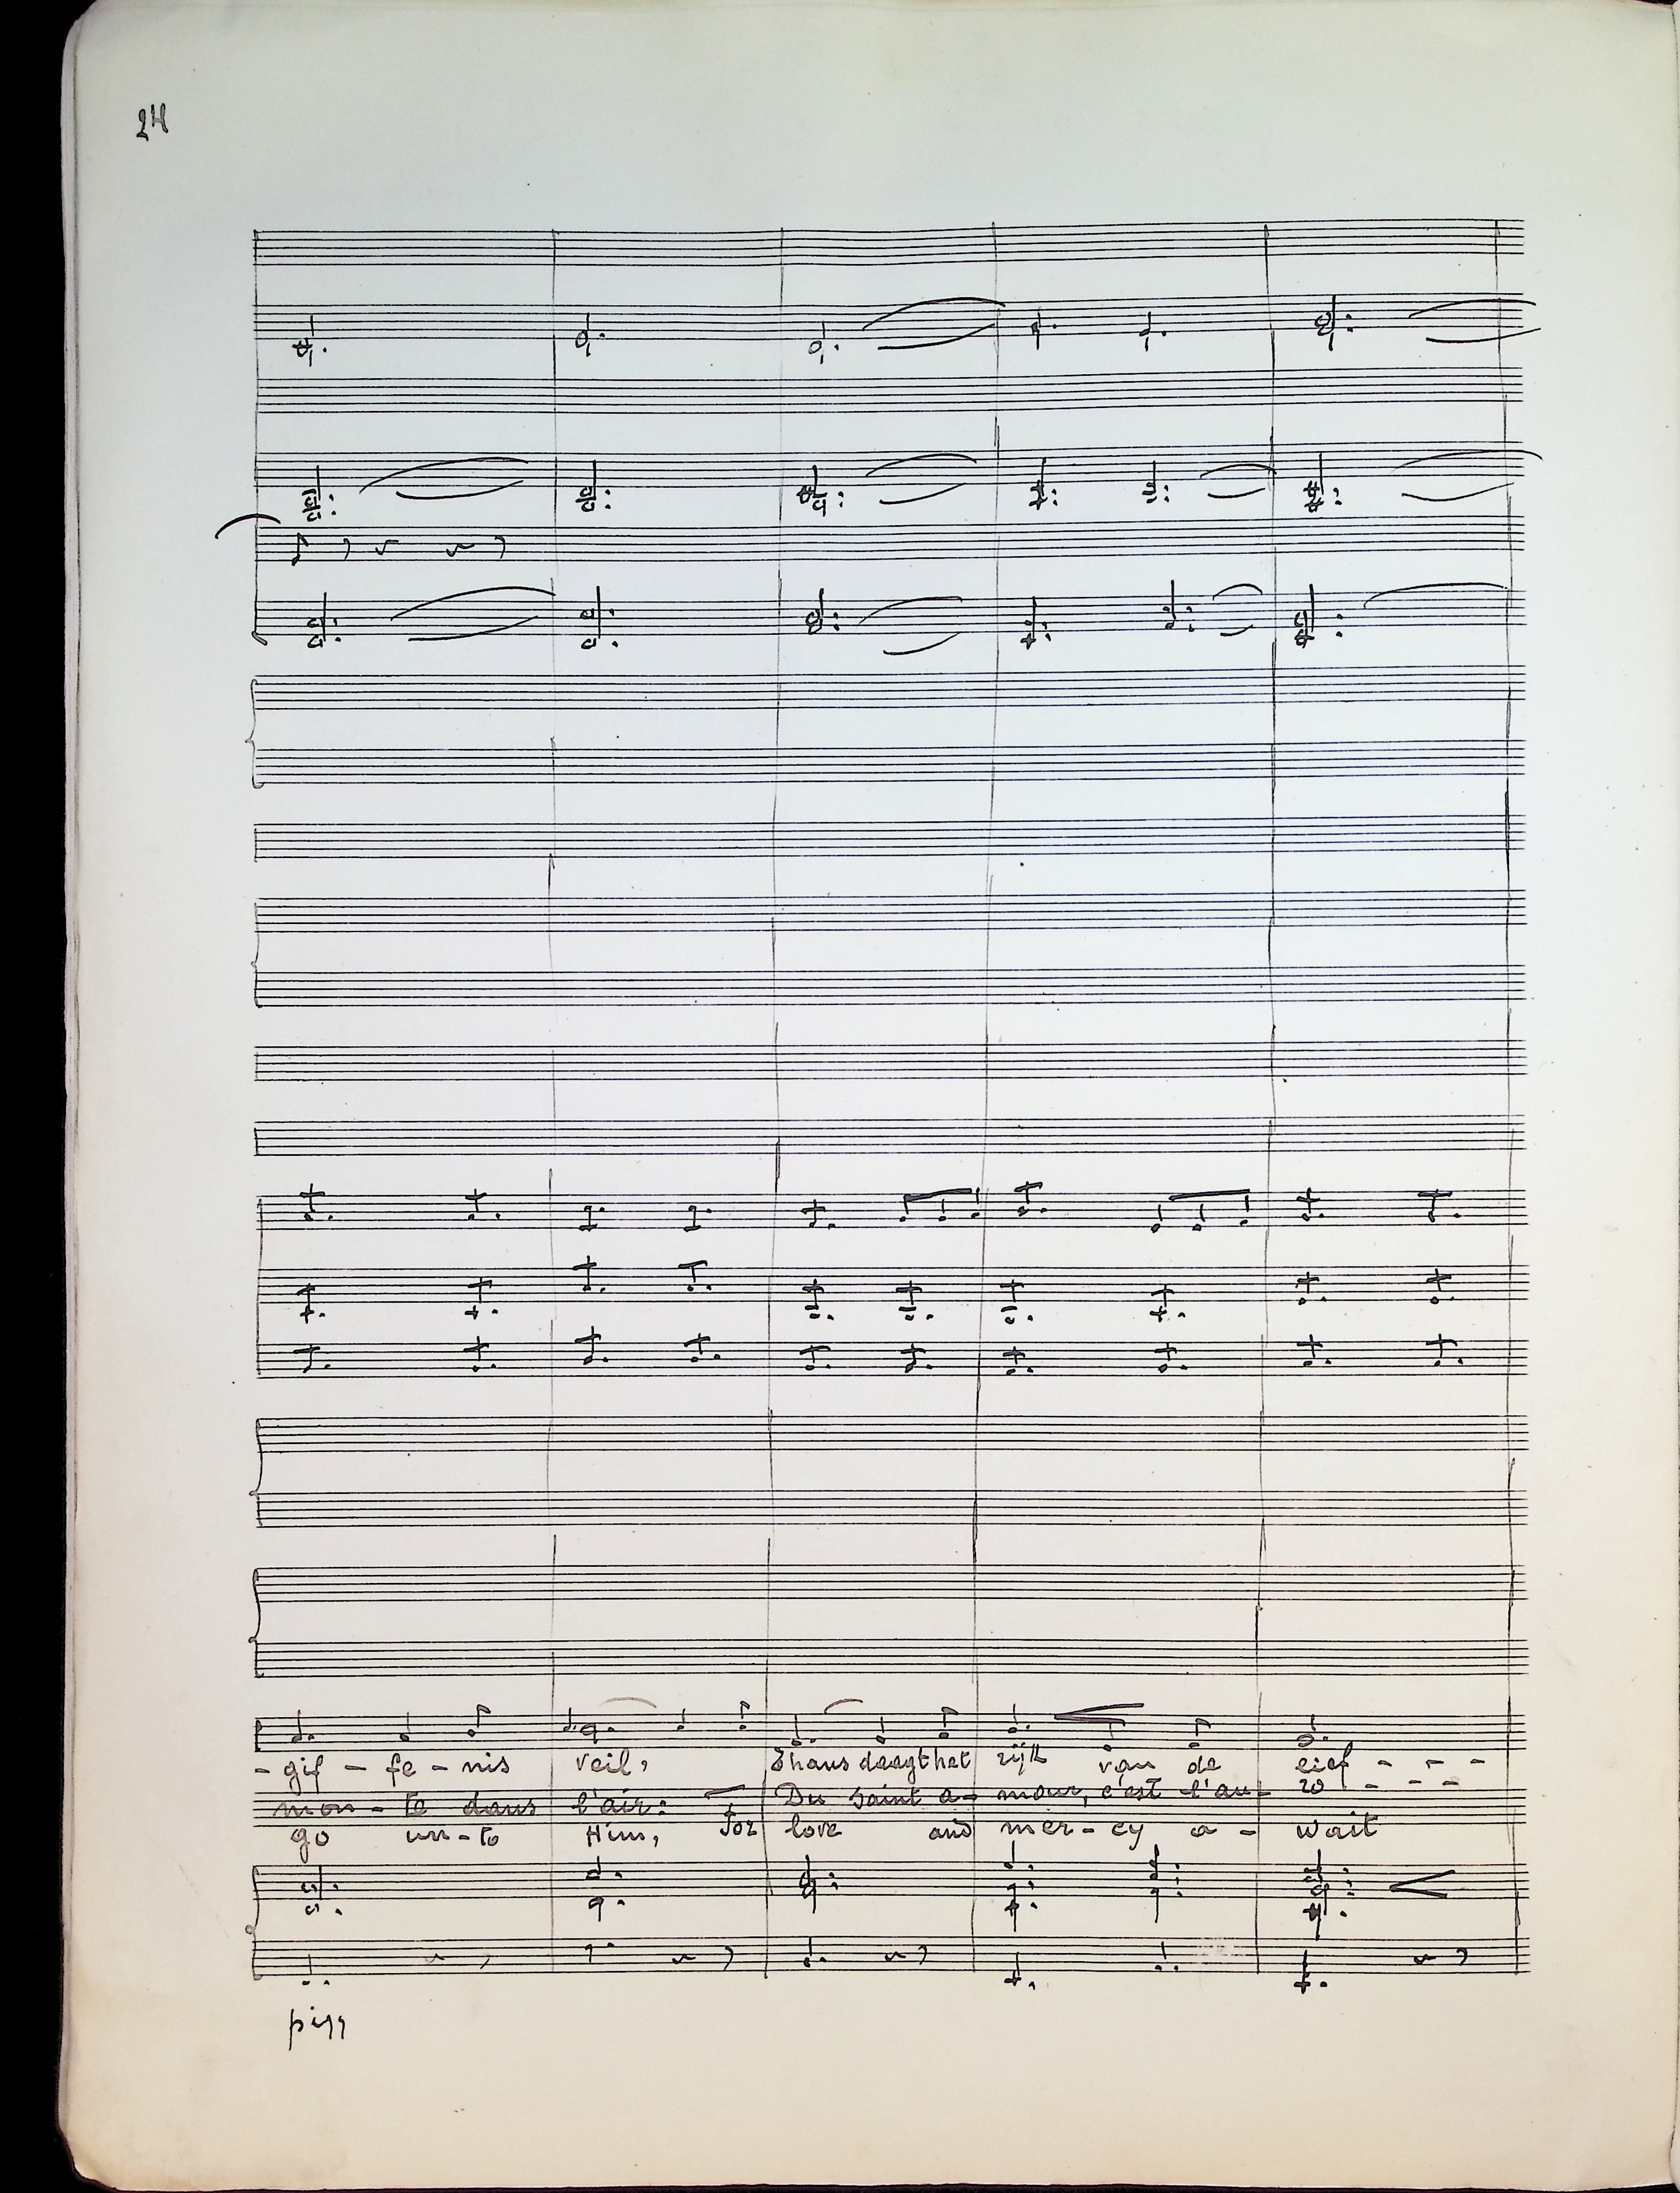 24
- gif - fe - nis veil, Thans daagt het rijk van de lief - - -
mon - te dans l'air: Du saint a- mour, c'est l'au- ro - - -
go un-to Him, for love and mer-cy a - wait
pizz